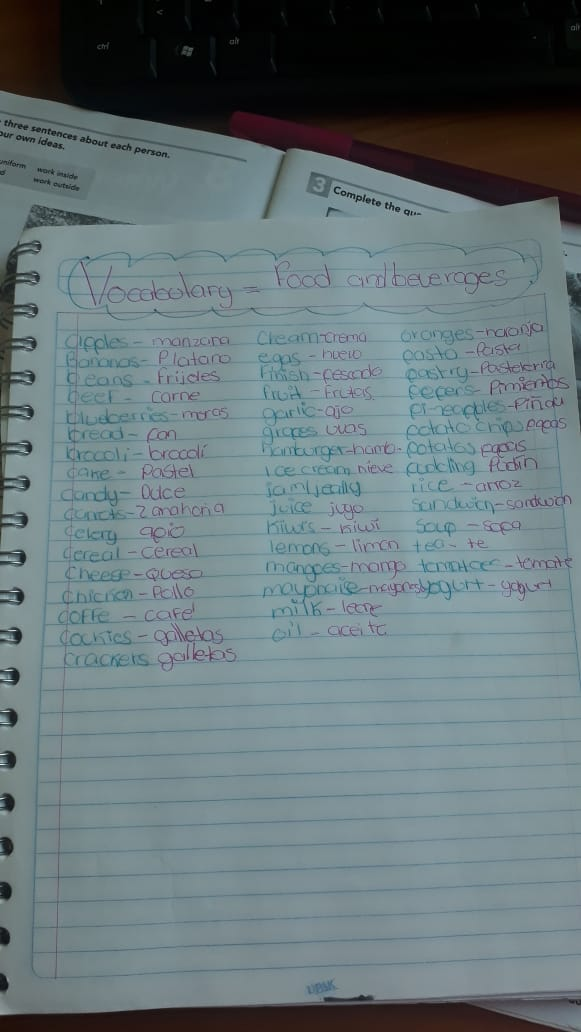 ctrl
alt
alt
three sentences about each person.
our own ideas.
uniform work inside
work outside
3 Complete the qu
Vocabolary = Food and beverages
apples - manzana
Bananas - Platano
beans - frijoles
beef - carne
blueberries - moras
bread - Pan
brocoli - brocoli
cake - Pastel
candy - Dulce
carrots - Zanahoria
celery apio
cereal - cereal
cheese - Queso
chicken - Pollo
coffe - cafe
cockies - galletas
crackers galletas
cream - crema
eggs - huevo
Finish - pescado
fruit - frutas
garlic - ajo
grapes uvas
hamburger - hamb.
Ice cream nieve
jam/jeally
juice jugo
kiwis - kiwi
lemons - limon
mangoes - mango
mayonaise - mayones
milk - leche
oil - aceite
oranges - naranja
pasta - Pasta
pastry - Pasteleria
pepers - Pimientos
pineapples - Piña
potato chips papas
potatos papas
pudding Pudin
rice - arroz
sandwich - sandwich
soup - sopa
tea - te
tomatoes - tomate
yogurt - yogurt